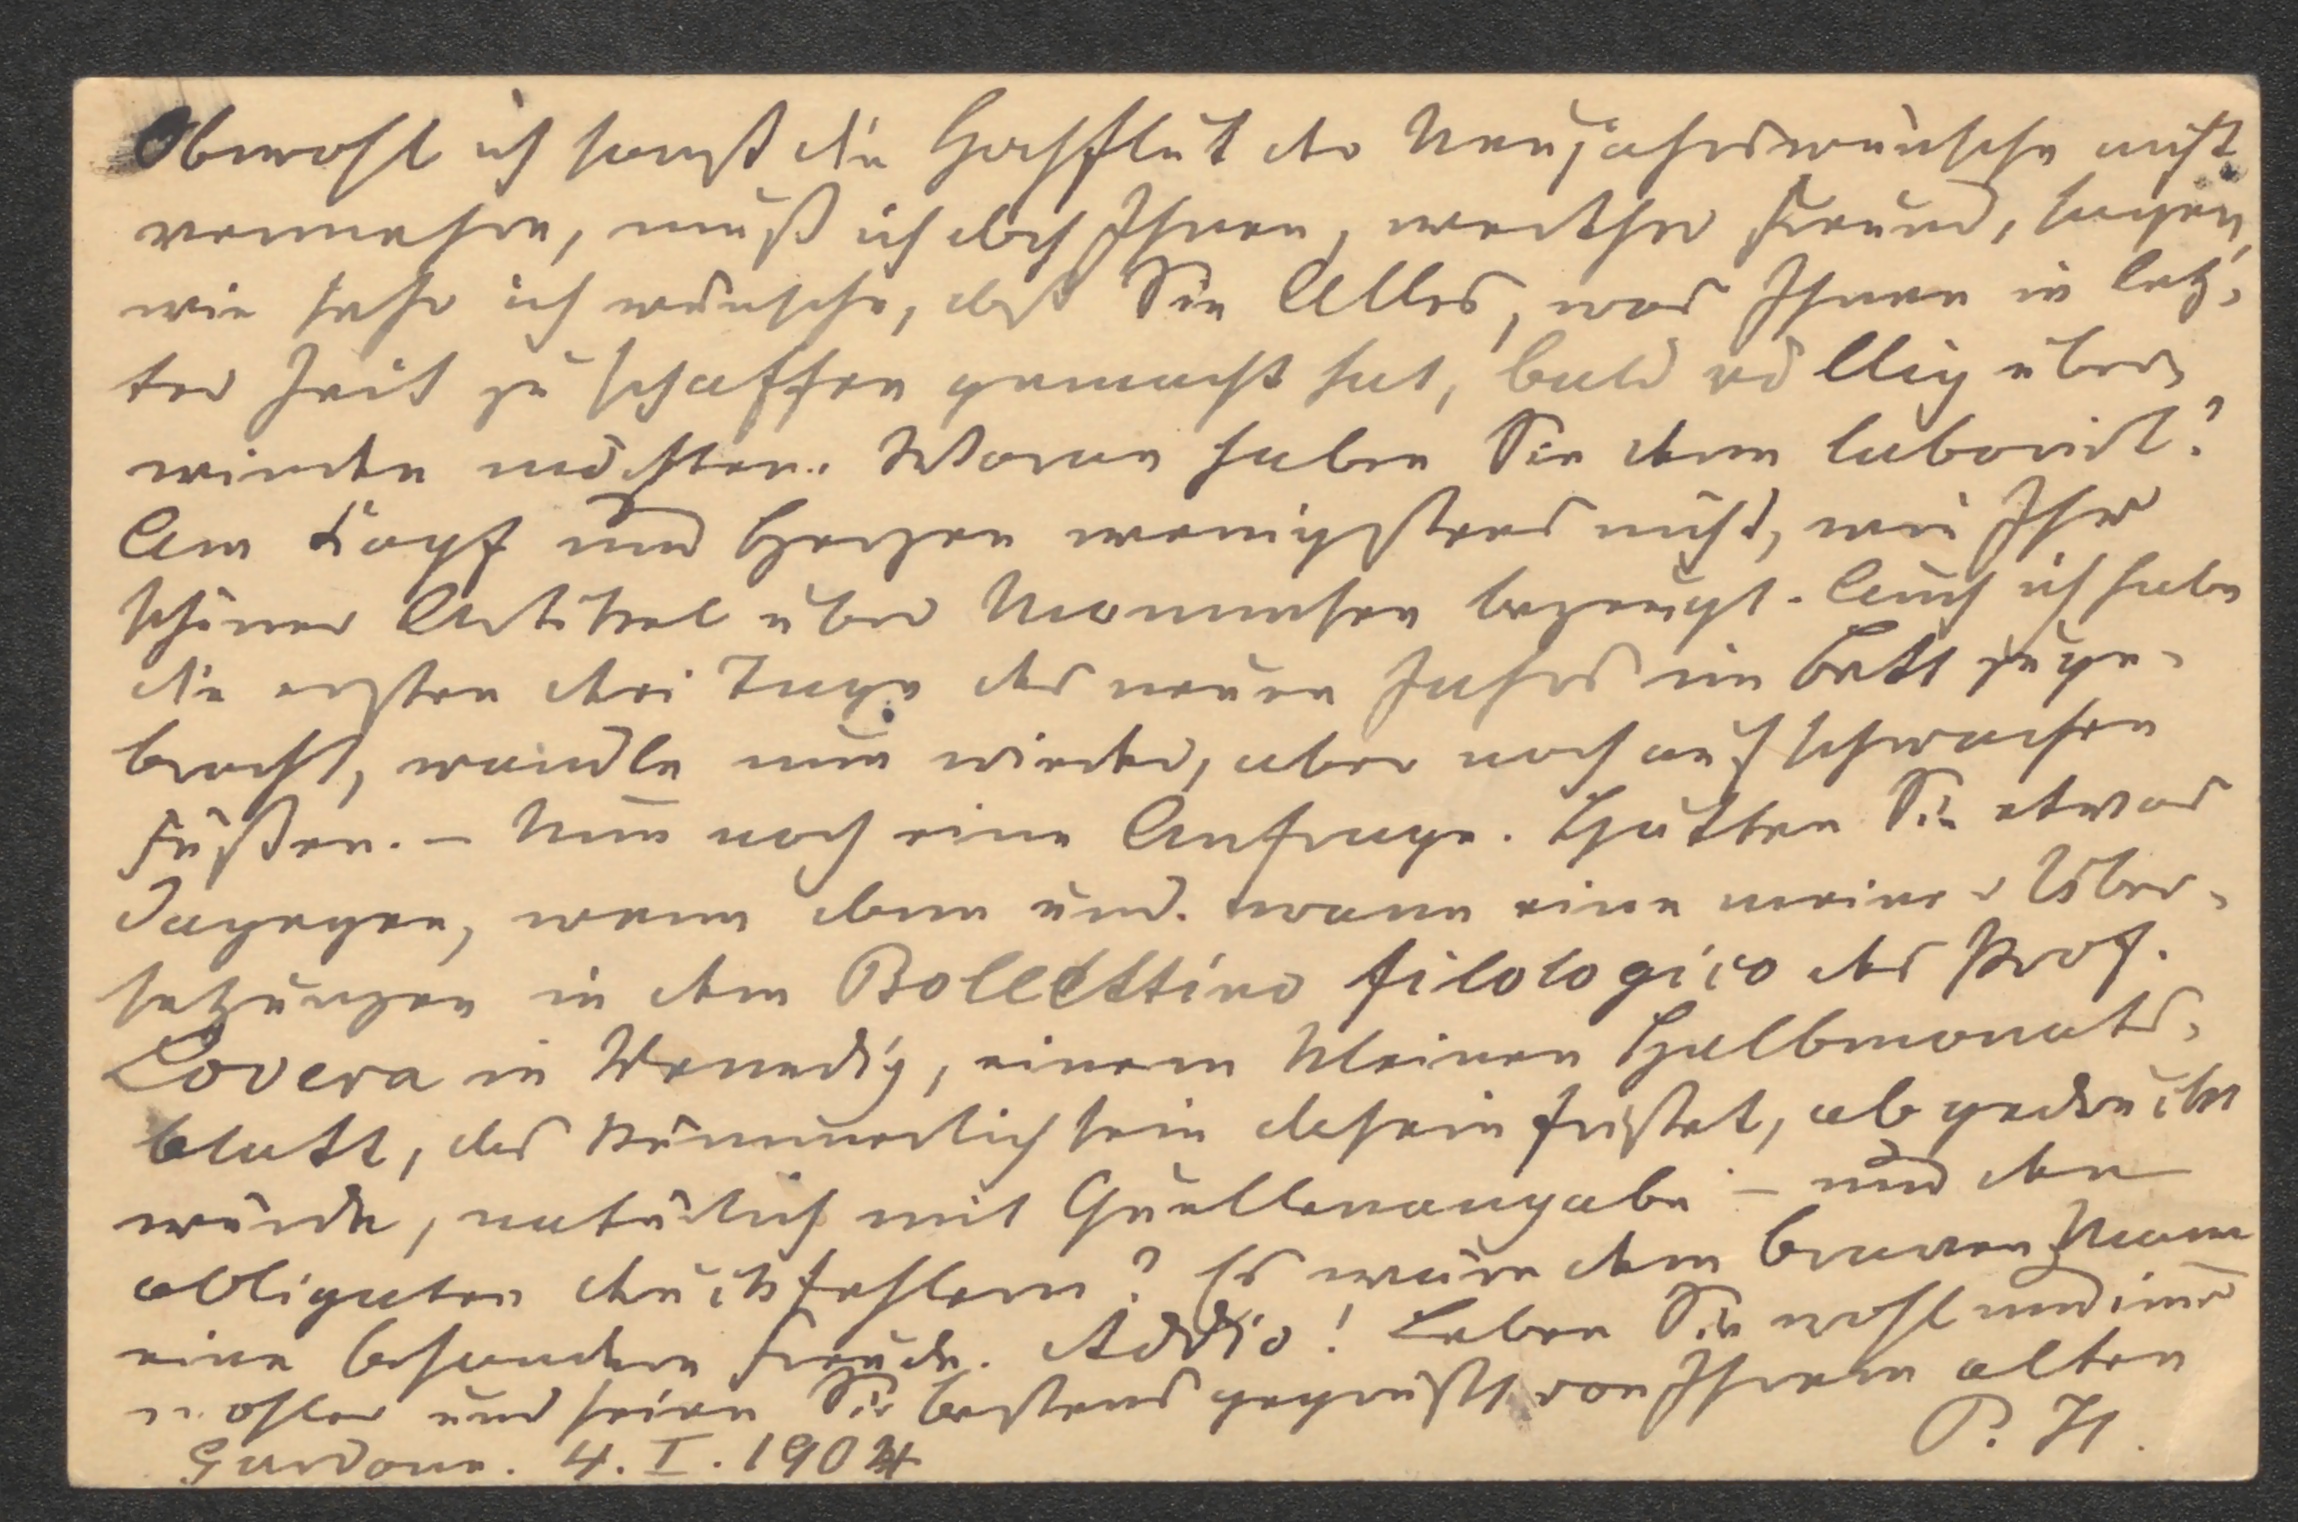 Obwohl ich sonst die Hochflut der Neujahrswünsche nicht
vermehre, muß ich doch Ihnen, werther Freund, sagen,
wie sehr ich wünsche, daß Sie Alles, was Ihnen in letz-
ter Zeit zu schaffen gemacht hat, bald völlig über-
winden möchten. Woran haben Sie denn laborirt?
Am Kopf und Herzen wenigstens nicht, wie Ihr
schöner Artikel über Mommsen bezeugt. Auch ich habe
die ersten drei Tage des neuen Jahrs im Bett zuge-
bracht, wandle nun wieder, aber noch auf schwachen
Füßen. – Nun noch eine Anfrage. Hätten Sie etwas
dagegen, wenn dann und wann eine meiner Über-
setzungen in dem Bollettino filologico des Prof.
Lovera in Venedig, einem kleinen Halbmonats-
blatt, das kümmerlich sein dasein fristet, abgedruckt
würde, natürlich mit Quellenangabe – und den
obligaten druckfehlern? Es wäre dem braven Mann
eine besondere Freude. Addio! Leben Sie wohl und immer
wohler und seien Sie bestens gegrüßt von Ihrem alten
P. H.
Gardone. 4. I. 1904